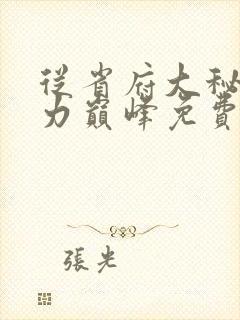 從省府大秘
力巔峰免費
張光